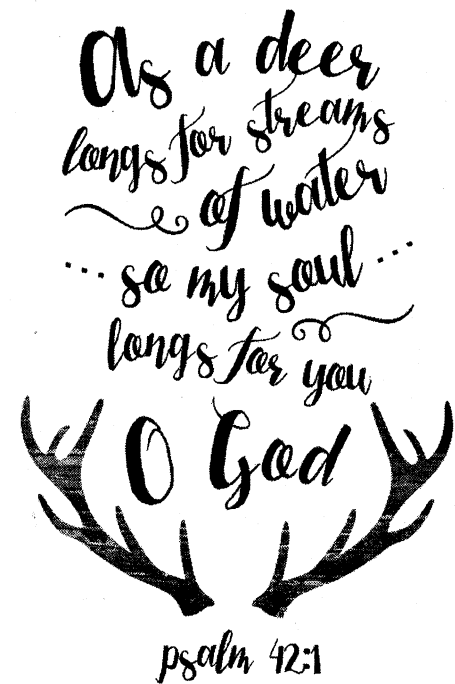 As a deer
longs for streams
of water
... so my soul ...
longs for you
O God
psalm 42:1